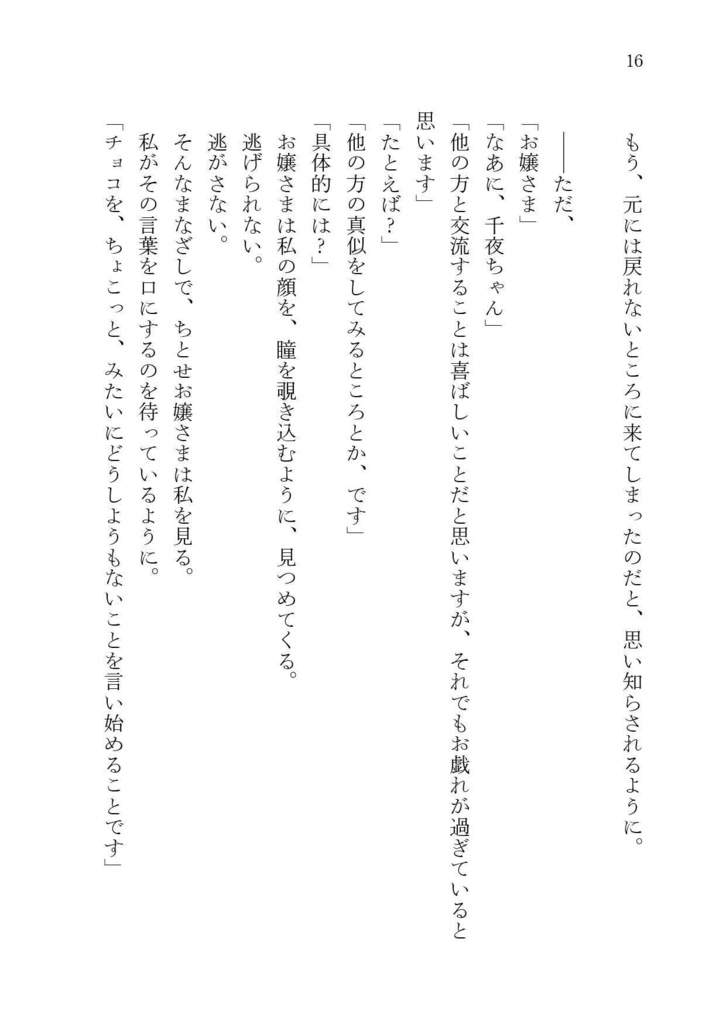 16
もう、元には戻れないところに来てしまったのだと、思い知らされるように。
――ただ、
「お嬢さま」
「なあに、千夜ちゃん」
「他の方と交流することは喜ばしいことだと思いますが、それでもお戯れが過ぎていると
思います」
「たとえば？」
「他の方の真似をしてみるところとか、です」
「具体的には？」
お嬢さまは私の顔を、瞳を覗き込むように、見つめてくる。
逃げられない。
逃がさない。
そんなまなざしで、ちとせお嬢さまは私を見る。
私がその言葉を口にするのを待っているように。
「チョコを、ちょこっと、みたいにどうしようもないことを言い始めることです」